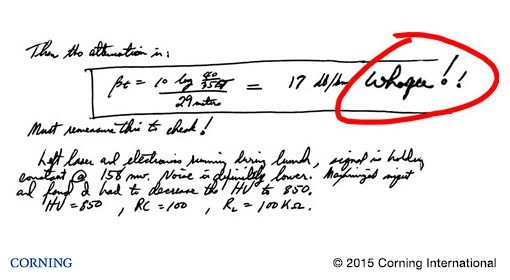 Then the attenuation is:
βt = 10 log 40 / 29 meters = 17 db/km Whoopee!!
Must remeasure this to check!
Left laser and electronics running during lunch, signal is holding
constant @ 158 mv. Noise is definitely lower. Maximized signal
and found I had to decrease the HV to 850.
HV = 850 , RC = 100 , RL = 100 KΩ.
CORNING
© 2015 Corning International